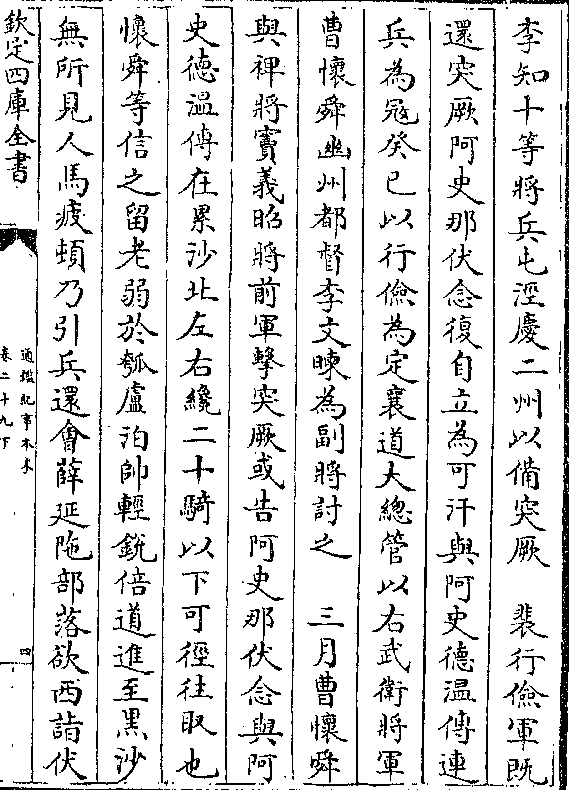 李知十等將兵屯涇慶二州以備突厥　裴行儉軍既
還突厥阿史那伏念復自立為可汗與阿史德溫傅連
兵為寇癸巳以行儉為定襄道大總管以右武衛將軍
曹懷舜幽州都督李文暕為副將討之　三月曹懷舜
與裨將竇義昭將前軍擊突厥或告阿史那伏念與阿
史德溫傅在累沙北左右纔二十騎以下可徑往取也
懷舜等信之留老弱於瓠盧泊帥輕銳倍道進至黒沙
無所見人馬疲頓乃引兵還會薛延陁部落欲西詣伏
欽定四庫全書
通鑑紀事本末
卷二十九下
四